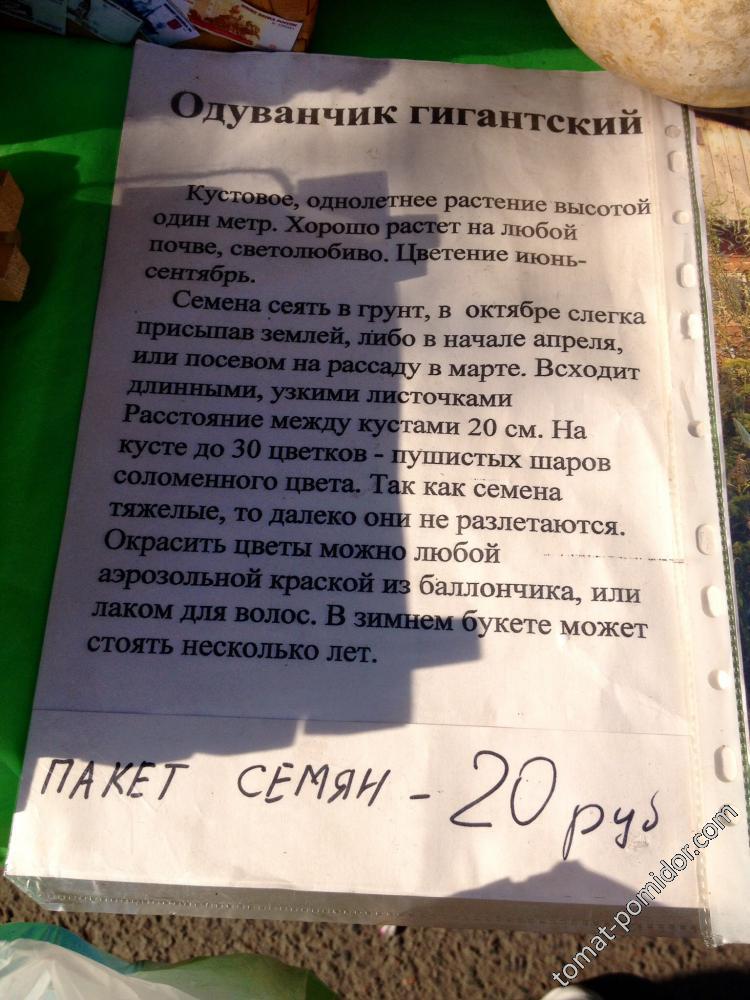 Одуванчик гигантский
Кустовое, однолетнее растение высотой
один метр. Хорошо растет на любой
почве, светолюбиво. Цветение июнь-
сентябрь.
Семена сеять в грунт, в октябре слегка
присыпав землей, либо в начале апреля,
или посевом на рассаду в марте. Всходит
длинными, узкими листочками
Расстояние между кустами 20 см. На
кусте до 30 цветков - пушистых шаров
соломенного цвета. Так как семена
тяжелые, то далеко они не разлетаются.
Окрасить цветы можно любой
аэрозольной краской из баллончика, или
лаком для волос. В зимнем букете может
стоять несколько лет.
ПАКЕТ СЕМЯН - 20 руб
tomat-pomidor.com